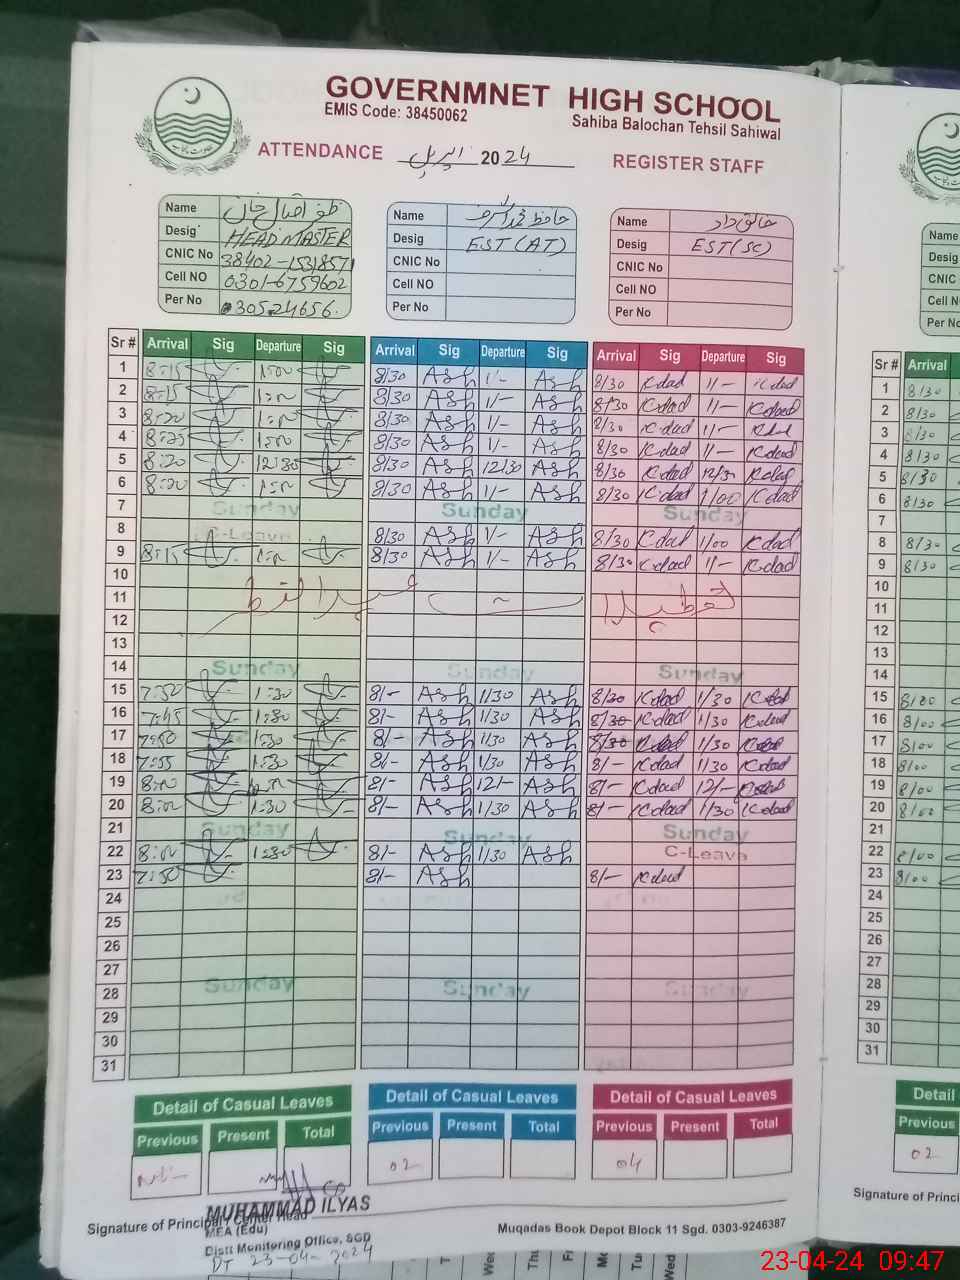 GOVERNMNET HIGH SCHOOL
EMIS Code: 38450062 Sahiba Balochan Tehsil Sahiwal
ATTENDANCE اپریل 2024 REGISTER STAFF
Name ظفر اقبال خان
Desig HEAD MASTER
CNIC No 38402-15318571
Cell NO 0301-6759602
Per No 30524656
Name حافظ محمد اشرف
Desig EST (AT)
CNIC No
Cell NO
Per No
Name خالق داد
Desig EST (SC)
CNIC No
Cell NO
Per No
Name
Desig
CNIC N
Cell N
Per No
Sr # Arrival Sig Departure Sig Arrival Sig Departure Sig Arrival Sig Departure Sig Sr # Arrival
1 8:15 1:00 8/30 Ash 1/- Ash 8/30 Kdad 1/- Kdad 1 8/30
2 8:15 8/30 Ash 1/- Ash 8/30 Kdad 1/- Kdad 2 8/30
3 8:20 8/30 Ash 1/- Ash 8/30 Kdad 1/- 3 8/30
4 8/30 Ash 1/- Ash 8/30 Kdad 1/- Kdad 4 8/30
5 8:20 12:30 8/30 Ash 12/30 Ash 8/30 Kdad 12/30 Kdad 5 8/30
6 8:20 8/30 Ash 1/- Ash 8/30 Kdad 1/00 Kdad 6 8/30
7 Sunday Sunday Sunday 7
8 C-Leave 8/30 Ash 1/- Ash 8/30 Kdad 1/00 Kdad 8 8/30
9 8:15 8/30 Ash 1/- Ash 8/30 Kdad 1/- Kdad 9 8/30
10 10
11 عیدالفطر تعطیلات 11
12 12
13 13
14 Sunday Sunday Sunday 14
15 7:50 1:30 8/- Ash 1/30 Ash 8/30 Kdad 1/30 Kdad 15 8/00
16 7:45 1:30 8/- Ash 1/30 Ash 8/30 Kdad 1/30 Kdad 16 8/00
17 7:50 1:30 8/- Ash 1/30 Ash 8/30 Kdad 1/30 Kdad 17 8/00
18 7:55 1:30 8/- Ash 1/30 Ash 8/- Kdad 1/30 Kdad 18 8/00
19 8:00 8/- Ash 12/- Ash 8/- Kdad 12/- Kdad 19 8/00
20 8:00 1:30 8/- Ash 1/30 Ash 8/- Kdad 1/30 Kdad 20 8/00
21 Sunday Sunday Sunday 21
22 8:00 1:30 8/- Ash 1/30 Ash C-Leave 22 8/00
23 7:50 8/- Ash 8/- Kdad 23 8/00
24 24
25 25
26 26
27 27
28 Sunday Sunday Sunday 28
29 29
30 30
31 31
Detail of Casual Leaves Detail of Casual Leaves Detail of Casual Leaves Detail
Previous Present Total Previous Present Total Previous Present Total Previous
Nil 02 04 02
MUHAMMAD ILYAS
Signature of Principal / Center Head
MEA (Edu)
Distt Monitoring Office, SGD
DT 23-04-2024
Muqadas Book Depot Block 11 Sgd. 0303-9246387
Signature of Princip
23-04-24 09:47